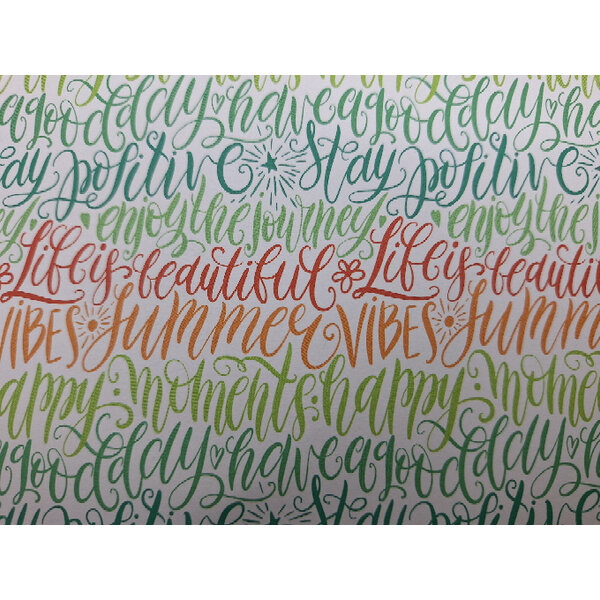 happy moments
a good day have a good day ha
ay positive Stay positive
ey enjoy the journey enjoy the jo
Life is beautiful Life is beauti
VIBES Summer VIBES Summ
appy moments happy moments
a good day have a good day ha
Stay positive Stay positive